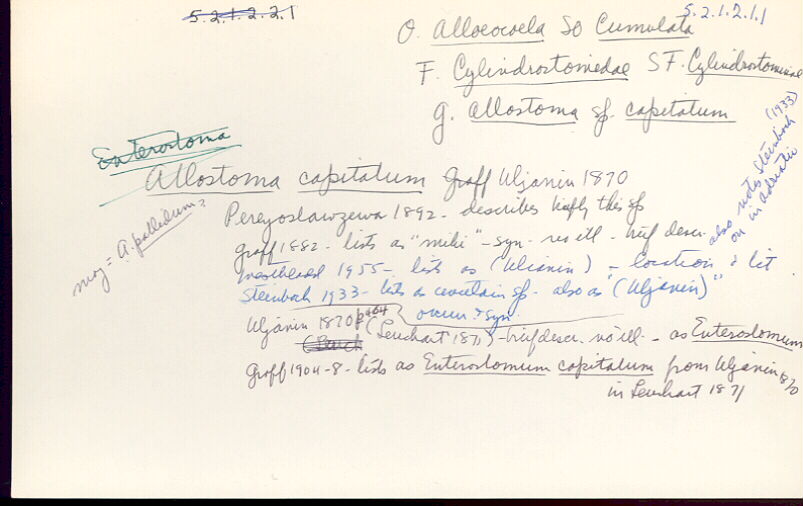 5.2.1.2.2.1
5.2.1.2.1.1
O. Alloeocoela SO Cumulata
F. Cylindrostomidae SF. Cylindrostominae
g. Allostoma sp. capitatum
Enterostoma
Allostoma capitatum Graff Uljanin 1870
may = A. pallidum?
Pereyoslawzewa 1892 - describes briefly this sp
Graff 1882 - lists as "mihi" - syn - no ill - brief descr.
also notes Steinboch (1933)
on in Adriatic
Westblad 1955 - lists as (Uljanin) - location & lit
Steinboch 1933 - lists as uncertain sp - also as "(Uljanin)"
occur & syn.
Uljanin 1870 p 404 (Leuchart 1871) - brief descr. no ill - as Enterostomum
(Leuch
Graff 1904-8 - lists as Enterostomum capitatum from Uljanin 1870
in Leuchart 1871